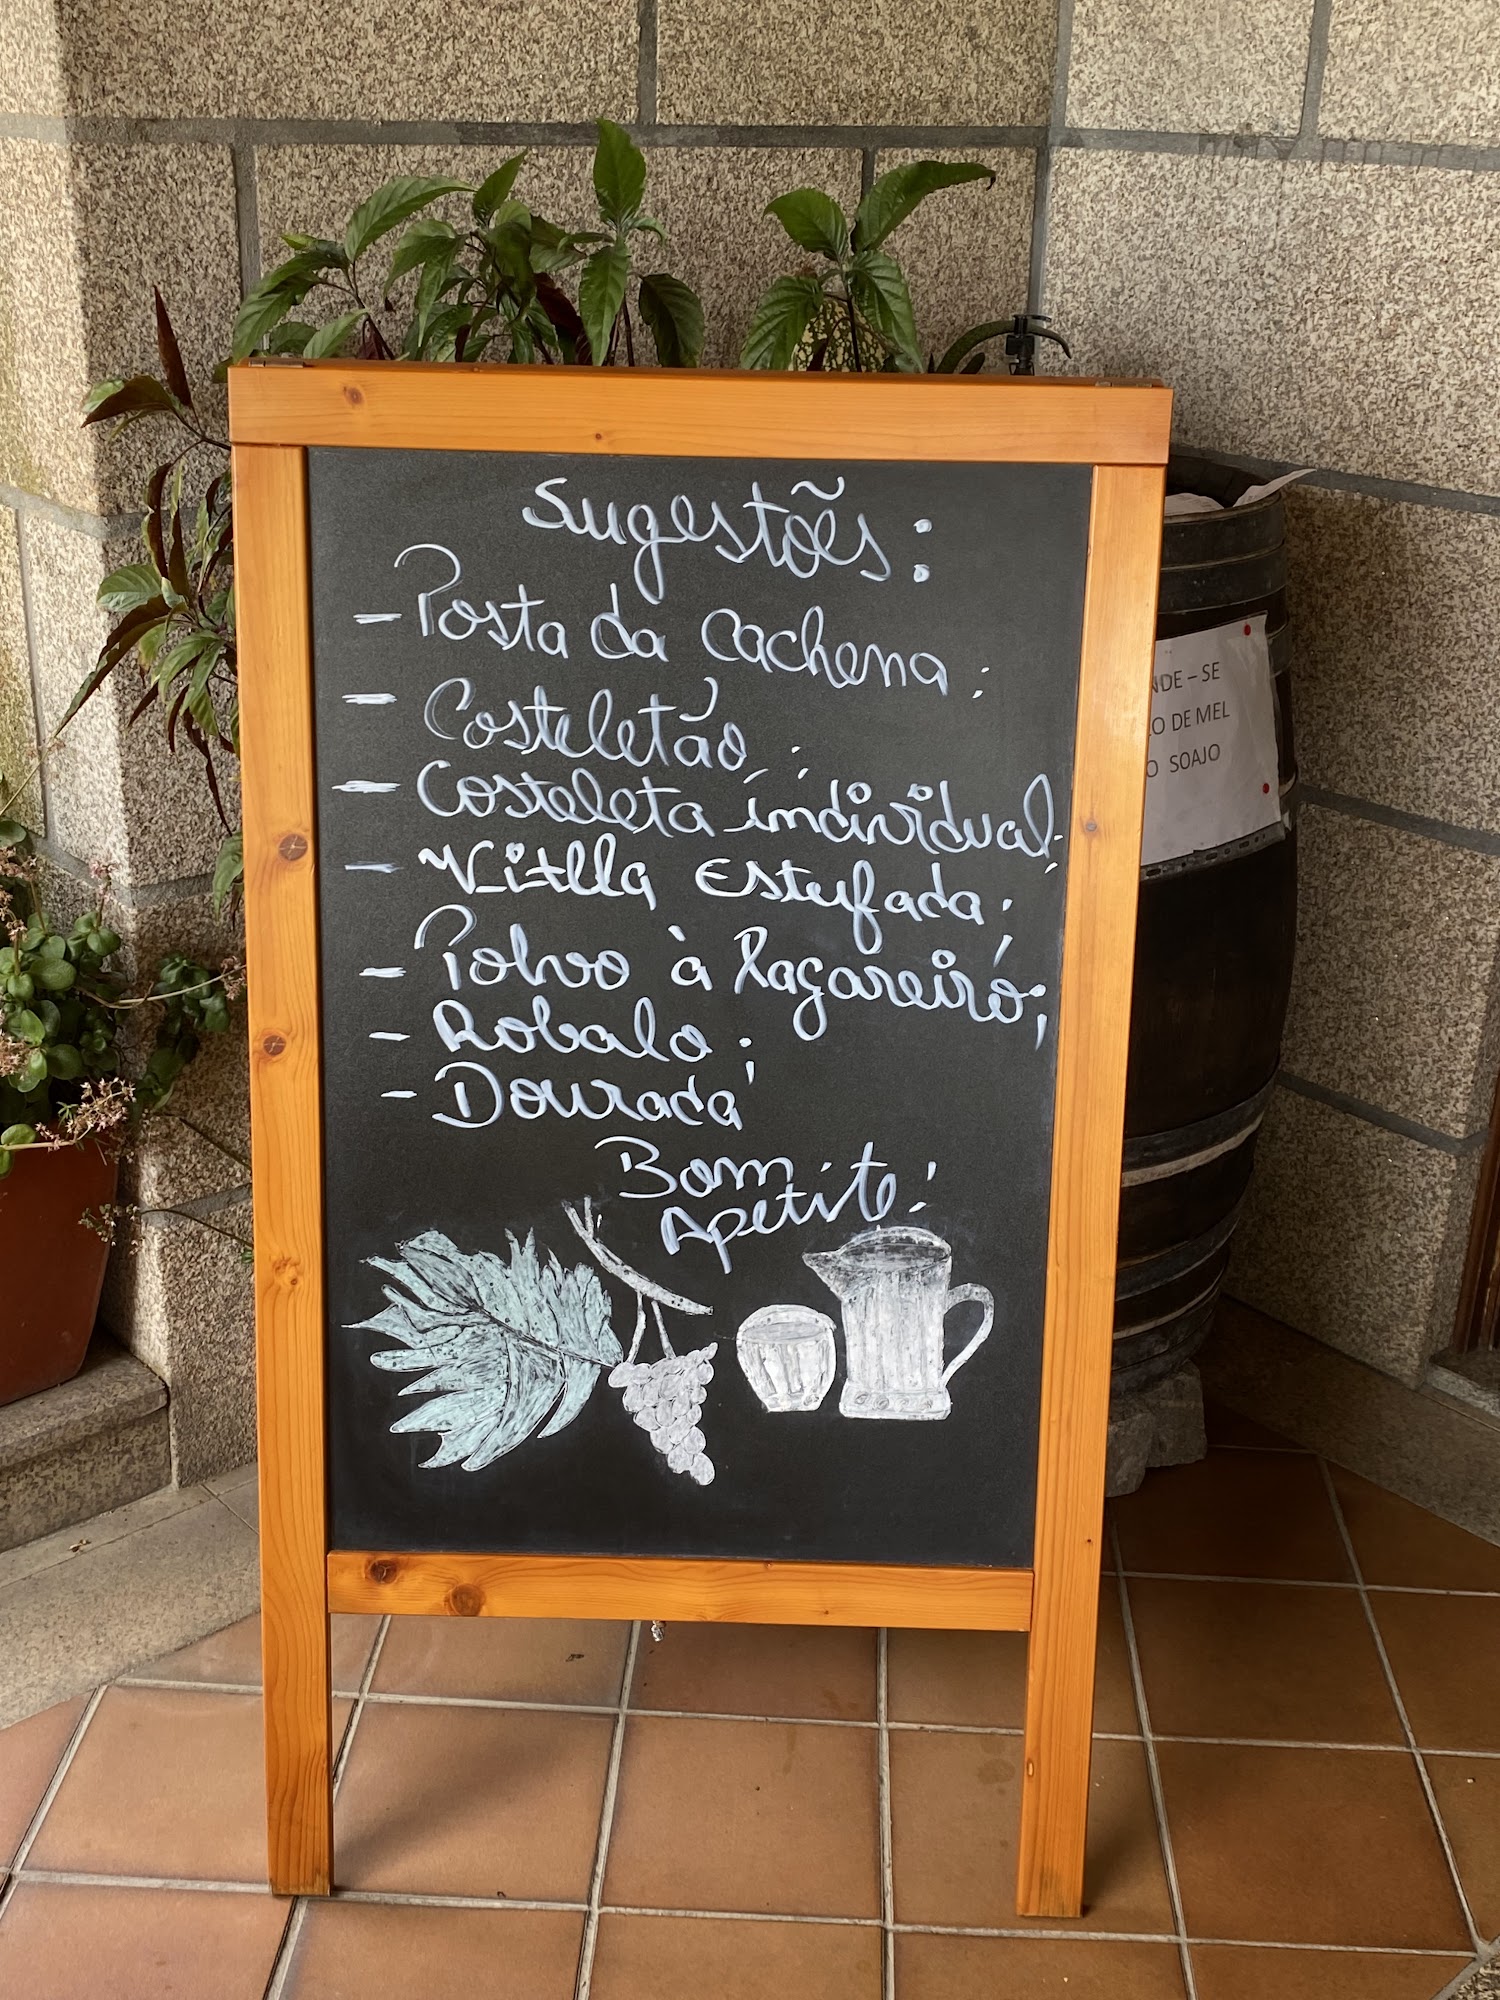 Sugestões:
- Posta da cachena;
- Costeletão;
- Costeleta individual;
- Vitella Estufada;
- Polvo à Lagareiro;
- Robalo;
- Dourada
Bom
Apetite!
NDE – SE
LO DE MEL
O SOAJO